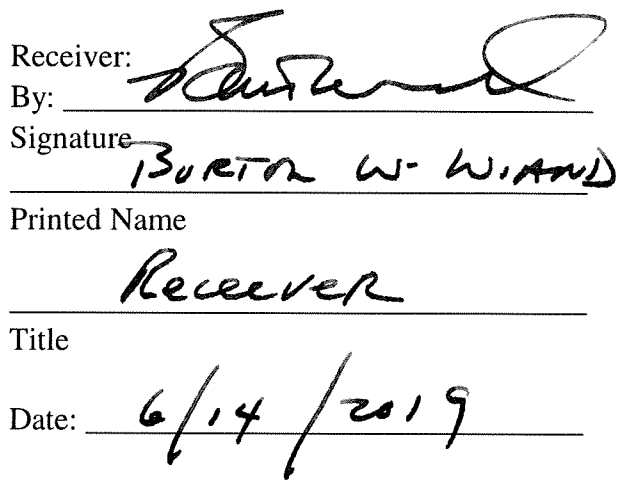 Receiver:
By:
Signature
BURTON W. WIAND
Printed Name
Receiver
Title
Date: 6/14/2019